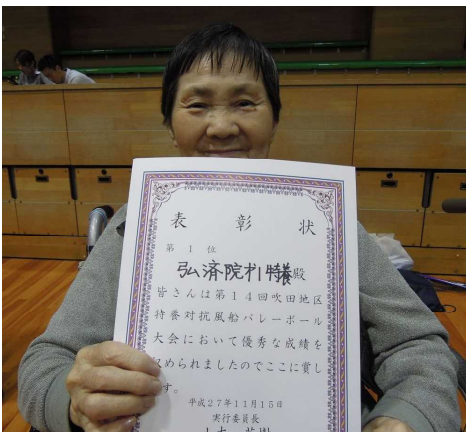 表 彰 状
第 1 位
弘済院才1特養殿
皆さんは第14回吹田地区
特養対抗風船バレーボール
大会において優秀な成績を
収められましたのでここに賞し
す。
平成27年11月15日
実行委員長